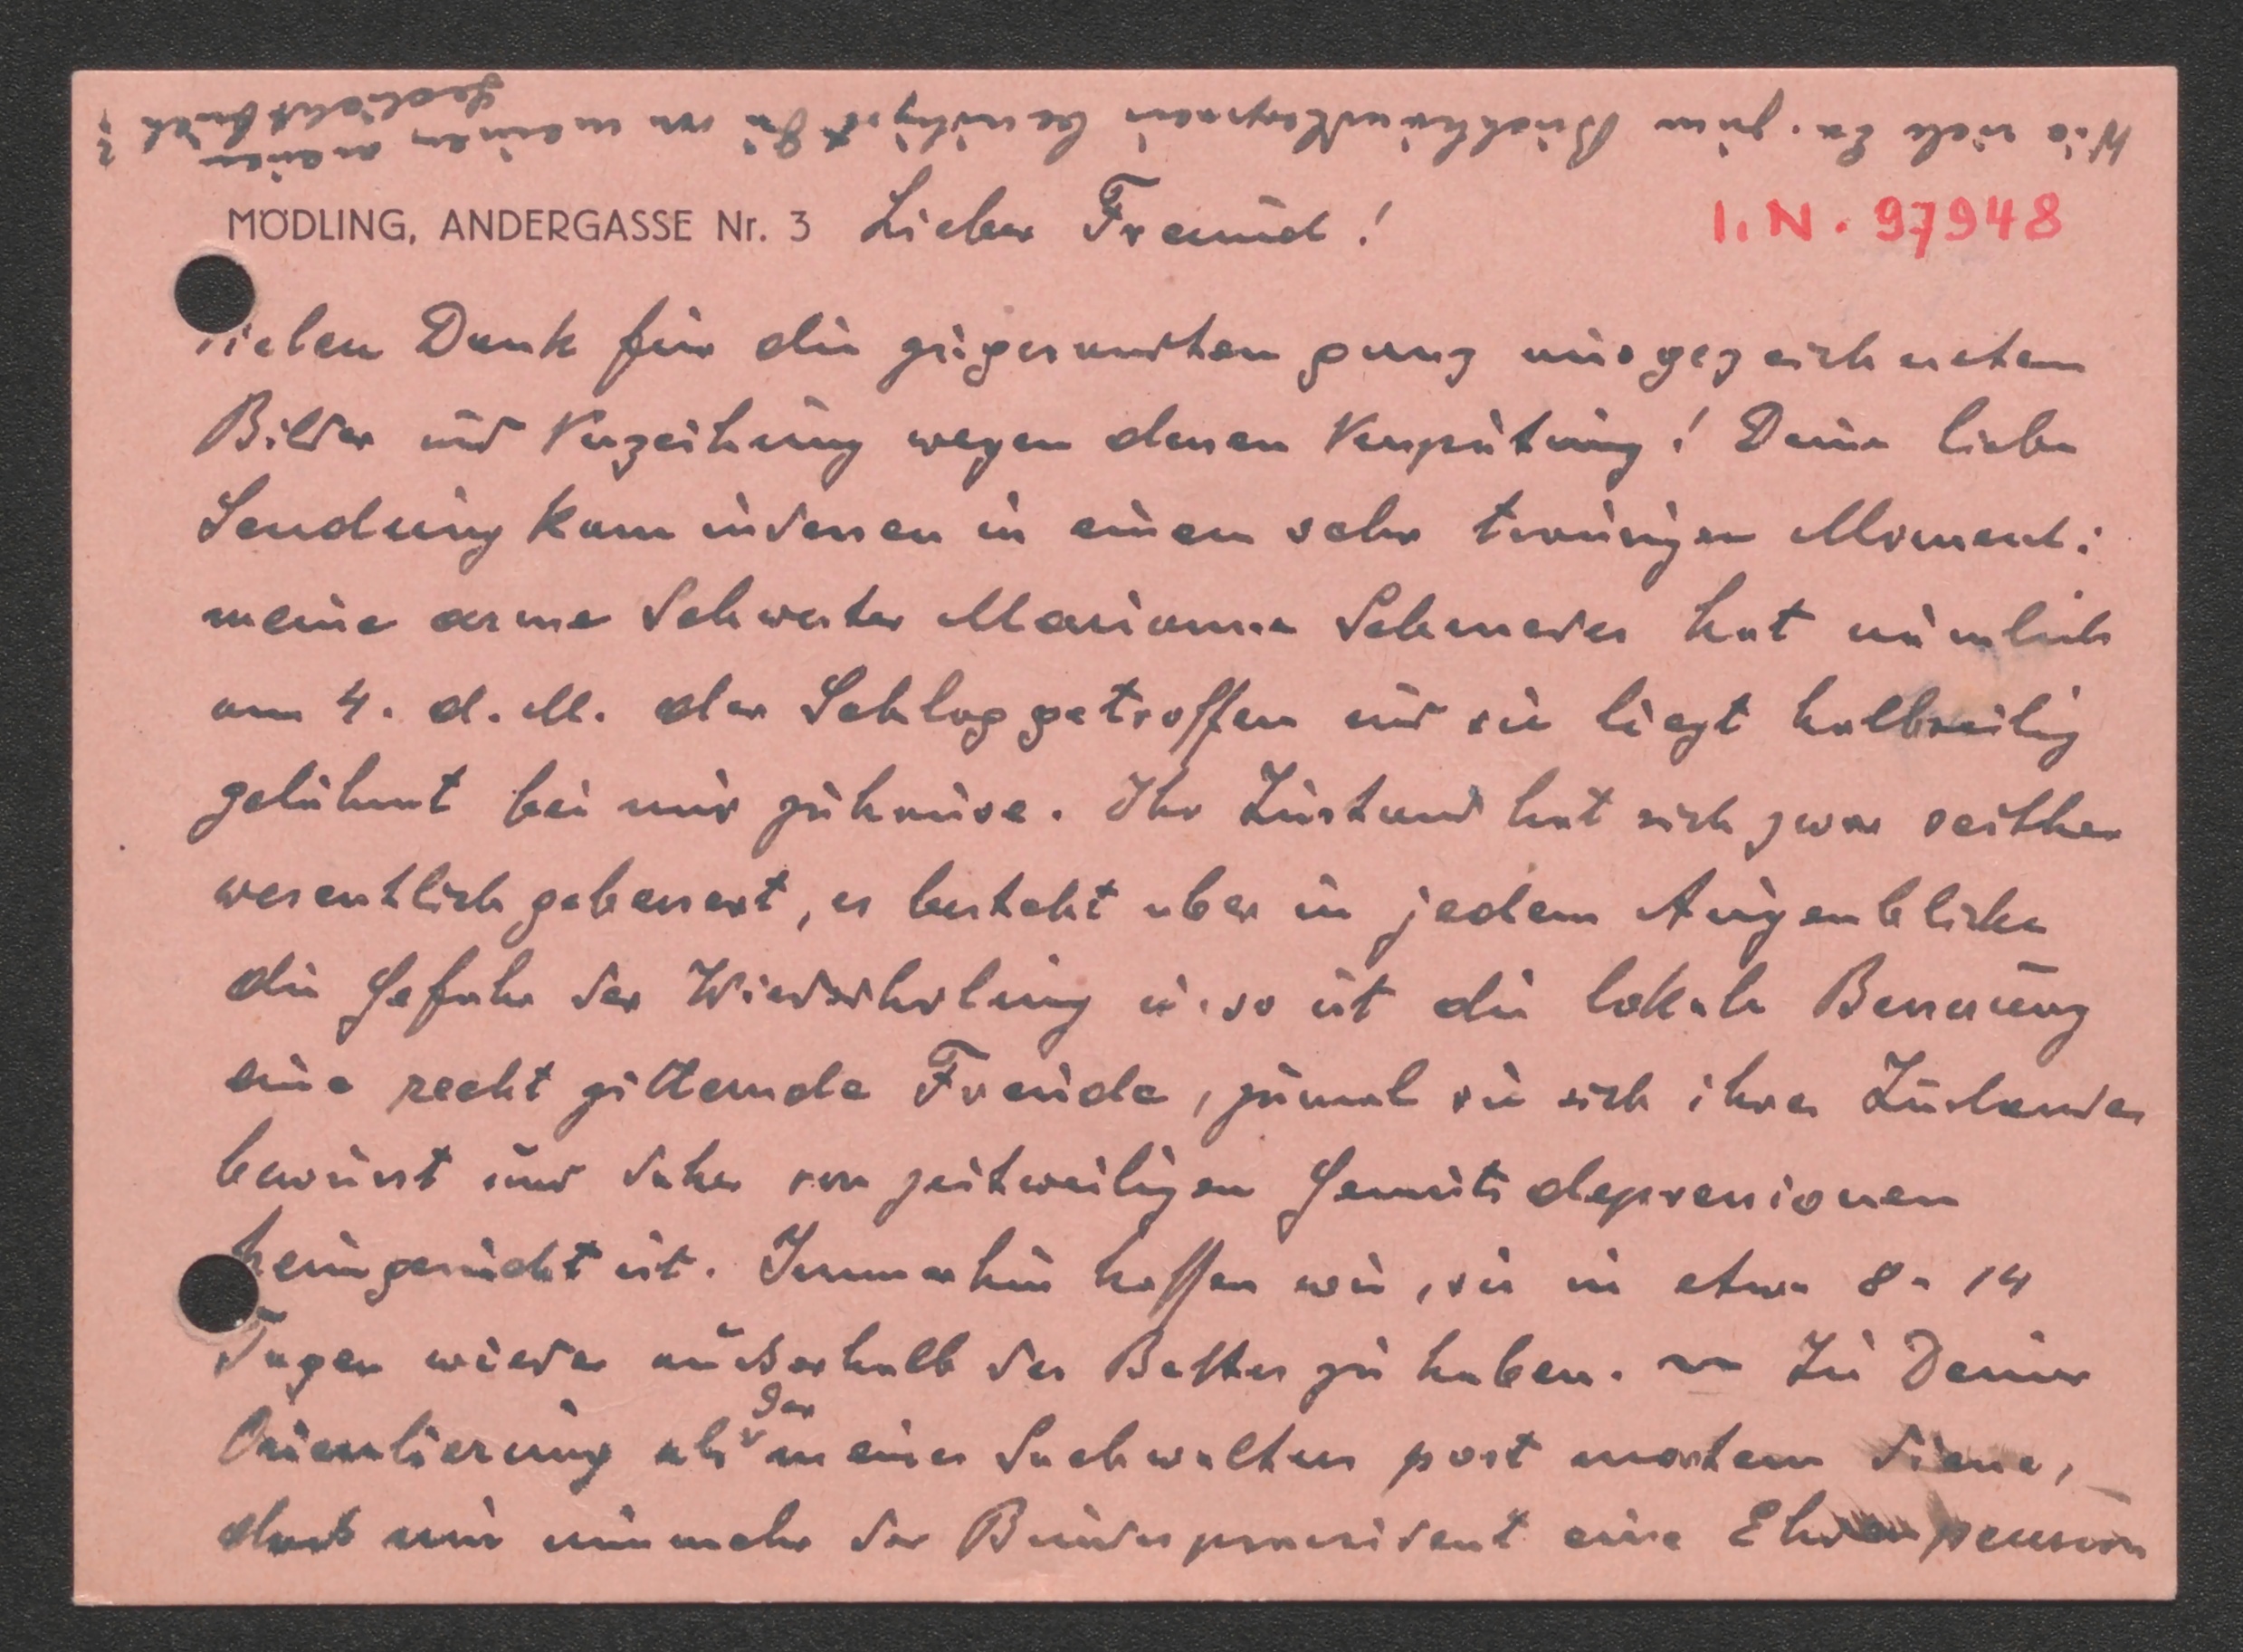 Wie viele Ex. zum Buchhändlerpreis benötigst Du von meinem neuen
Gedichtbuch?
MÖDLING, ANDERGASSE Nr. 3 Lieber Freund!
I. N. 97948
Vielen Dank für die zugesandten ganz ausgezeichneten
Bilder und Verzeihung wegen deren Verspätung! Deine liebe
Sendung kam indessen in einem sehr traurigen Moment:
meine arme Schwester Marianne hat nämlich
am 4. d. M. der Schlag getroffen und sie liegt halbseitig
gelähmt bei mir zuhause. Ihr Zustand hat sich zwar seither
wesentlich gebessert, es besteht aber in jedem Augenblicke
die Gefahr der Wiederholung u. so ist die lokale Besserung
eine recht zitternde Freude, zumal sie sich ihres Zustandes
bewusst und daher von zeitweiligen Gemütsdepressionen
heimgesucht ist. Immerhin hoffen wir, sie in etwa 8-14
Tagen wieder außerhalb des Bettes zu haben. ~ Zu Deiner
Orientierung als der meines Sachwalters post mortem diene,
daß mir nunmehr der Bundespraesident eine Ehrenpension